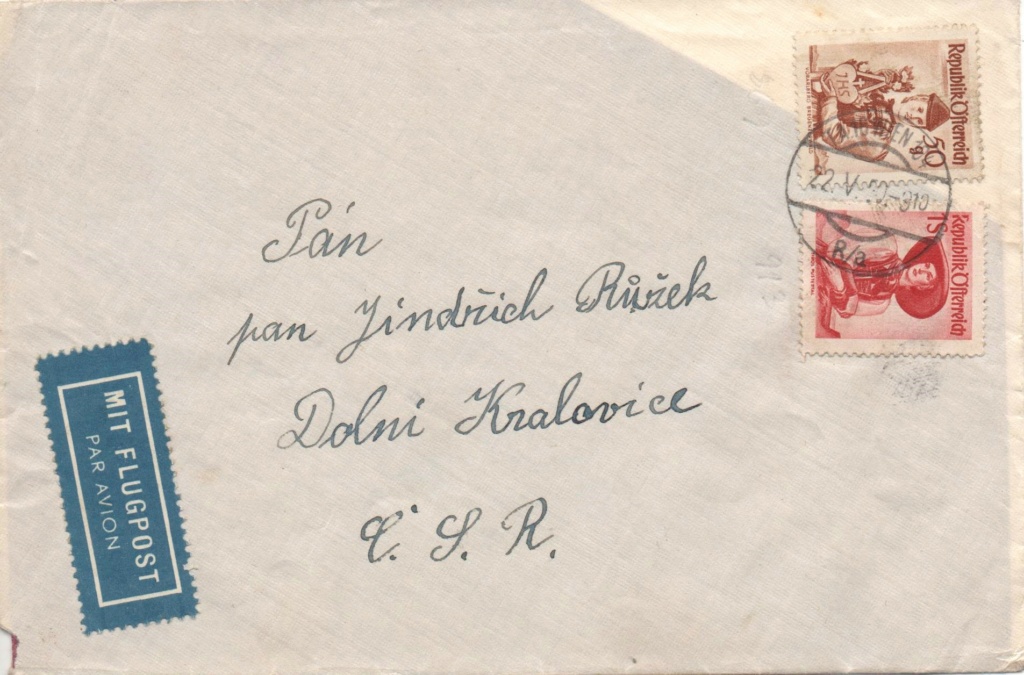 Republik Österreich
50
g
JHS
22. V.
Republik Österreich
1 S
R/a
Pán
pan Jindřich Růžek
Dolni Kralovice
Č. S. R.
MIT FLUGPOST
PAR AVION